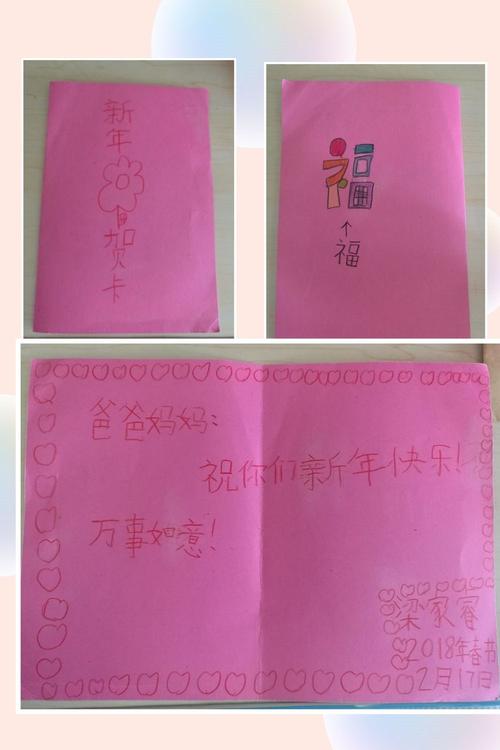 新年
贺卡
福
福
爸爸妈妈:
祝你们新年快乐!
万事如意!
梁家睿
2018年春节
2月17日